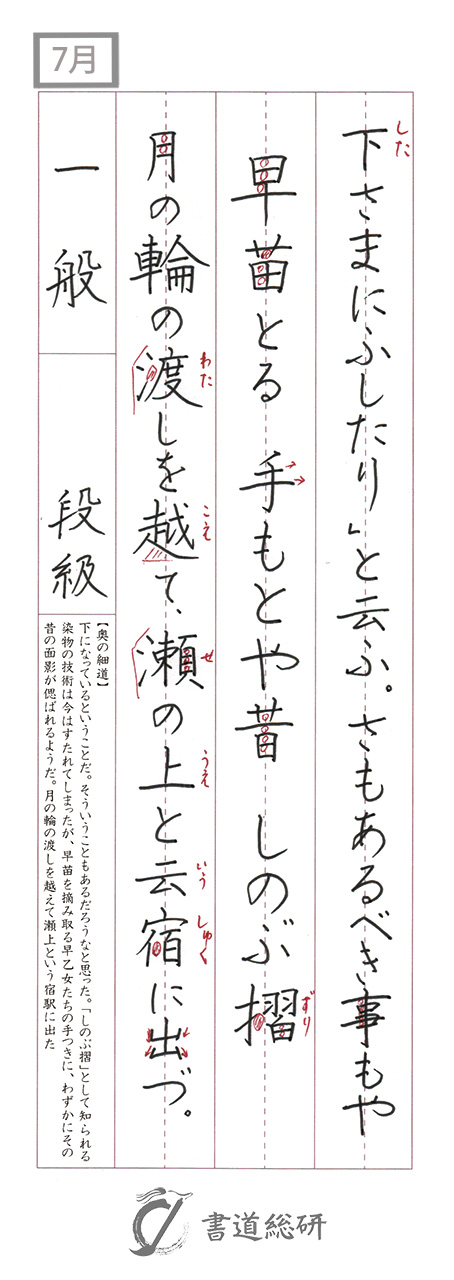 7月
下さまにふしたり」と云ふ。さもあるべき事もや
した
早苗とる 手もとや昔 しのぶ摺
ずり
月の輪の渡しを越て、瀬の上と云宿に出づ。
わた
こえ
せ
うえ
いう
しゅく
一般
段級
【奥の細道】
下になっているということだ。そういうこともあるだろうなと思った。「しのぶ摺」として知られる
染物の技術は今はすたれてしまったが、早苗を摘み取る早乙女たちの手つきに、わずかにその
昔の面影が偲ばれるようだ。月の輪の渡しを越えて瀬上という宿駅に出た
書道総研